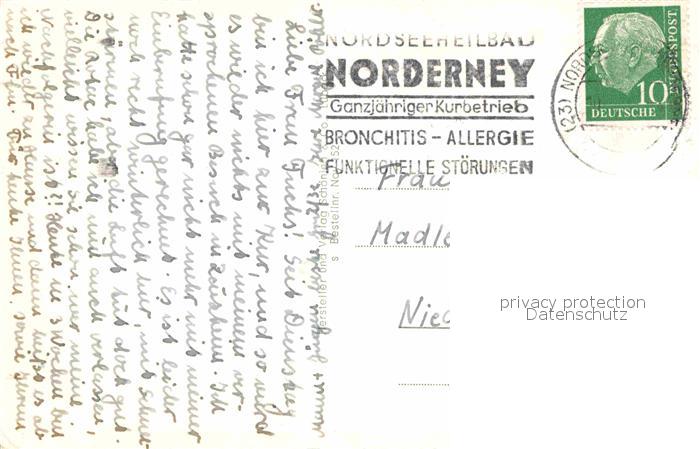 NORDSEEHEILBAD
NORDERNEY
Ganzjähriger Kurbetrieb
BRONCHITIS – ALLERGIE
FUNKTIONELLE STÖRUNGEN
(23) NORD
10
DEUTSCHE
BUNDESPOST
Frau
Madle
Nied
privacy protection
Datenschutz
Hersteller und Verlag Schöning
Bestellnr.
Liebe Frau Fuchs! Seit Dienstag
bin ich hier zur Kur, und so wird
es wieder nichts mit meinem ver-
sprochenen Besuch in Ich
hatte schon gar nicht mehr mit meiner
Einberufung gerechnet. Es ist leider
noch recht winterlich hier, mit Schnee-
stürmen, aber die Luft tut doch gut.
Die habe ich mit auch verlassen,
vielleicht wäre sie schon nur meine
ist!! Heute in 3 Wochen bin
ich wieder zu Hause und dann heißt es ab
nach Ihnen, sowie Ihrem